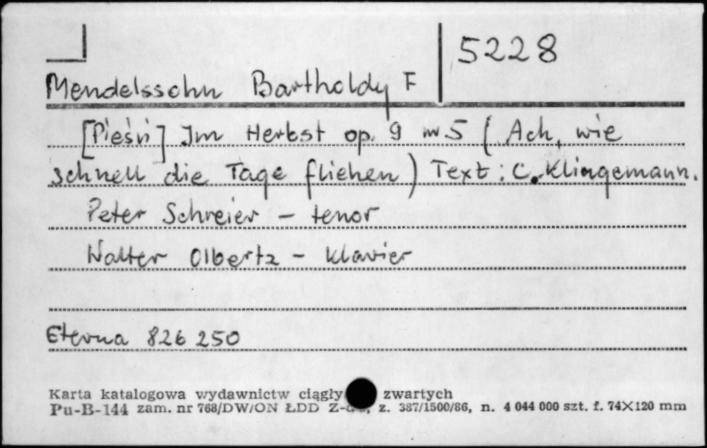 5228
Mendelssohn Bartholdy F
[Pieśń] Im Herbst op. 9 nr 5 (Ach, wie
schnell die Tage fliehen) Text: C. Klingemann.
Peter Schreier – tenor
Walter Olbertz – Klavier
Eterna 826 250
Karta katalogowa wydawnictw ciągły zwartych
Pu-B-144 zam. nr 768/DW/ON ŁDD z. 387/1500/86, n. 4 044 000 szt. f. 74×120 mm